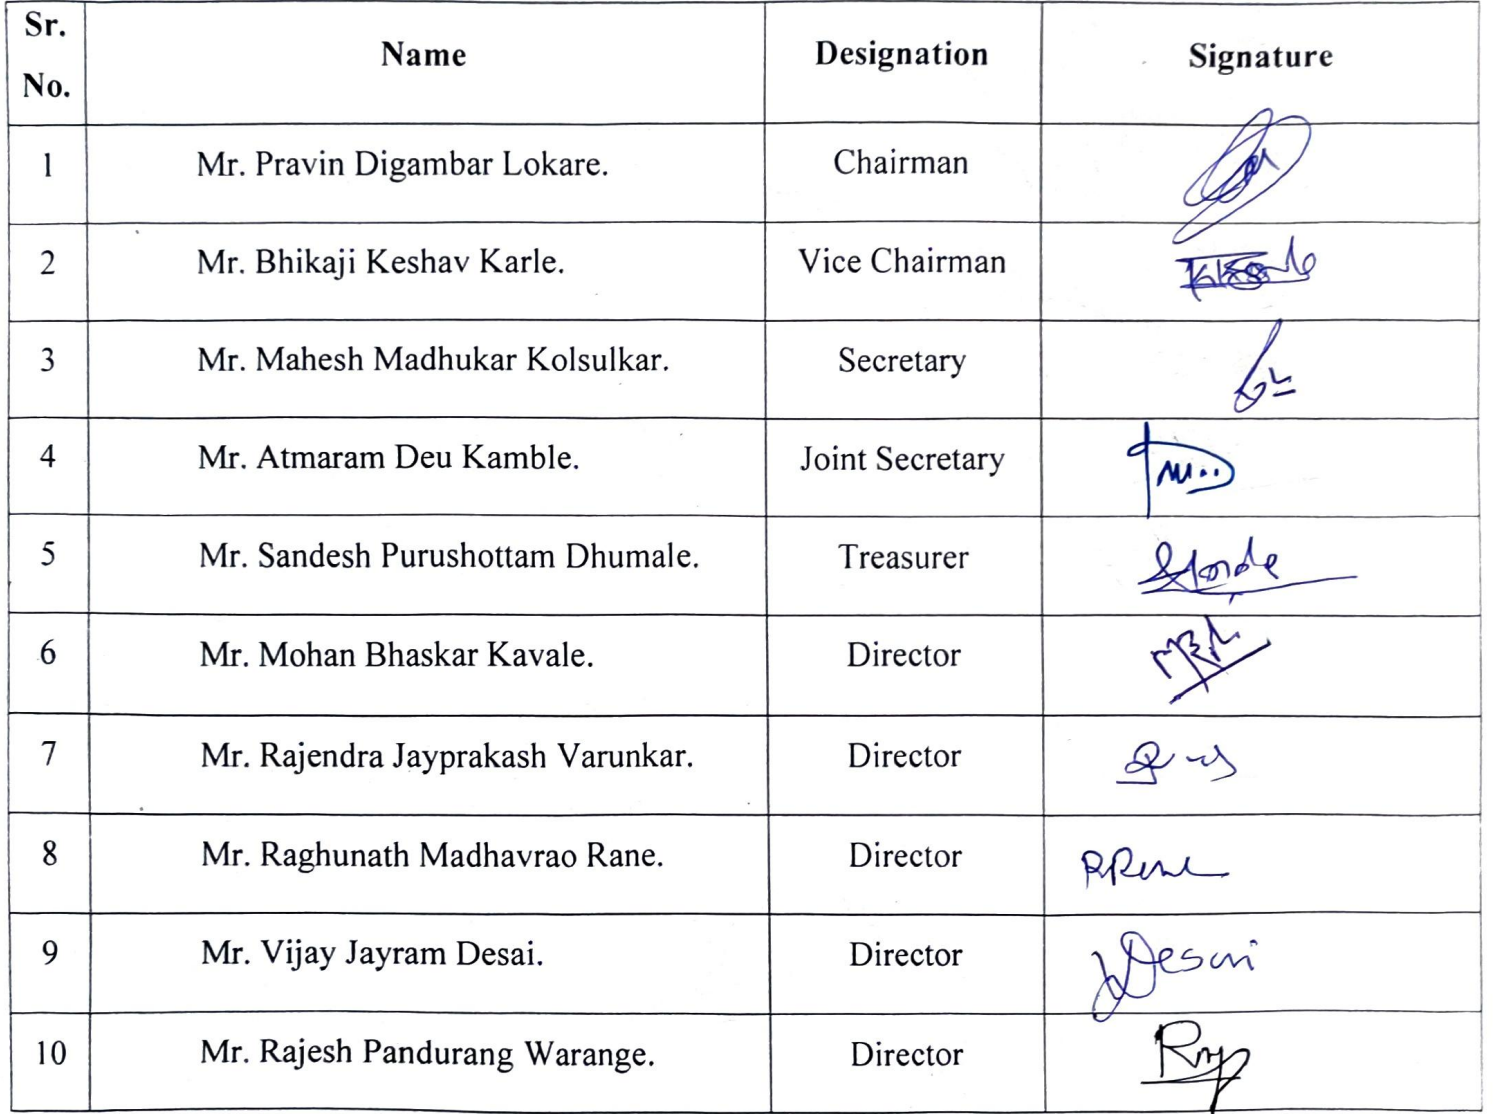 Sr. No. Name Designation Signature
1 Mr. Pravin Digambar Lokare. Chairman
2 Mr. Bhikaji Keshav Karle. Vice Chairman
3 Mr. Mahesh Madhukar Kolsulkar. Secretary
4 Mr. Atmaram Deu Kamble. Joint Secretary
5 Mr. Sandesh Purushottam Dhumale. Treasurer
6 Mr. Mohan Bhaskar Kavale. Director
7 Mr. Rajendra Jayprakash Varunkar. Director
8 Mr. Raghunath Madhavrao Rane. Director RRane
9 Mr. Vijay Jayram Desai. Director VDesai
10 Mr. Rajesh Pandurang Warange. Director